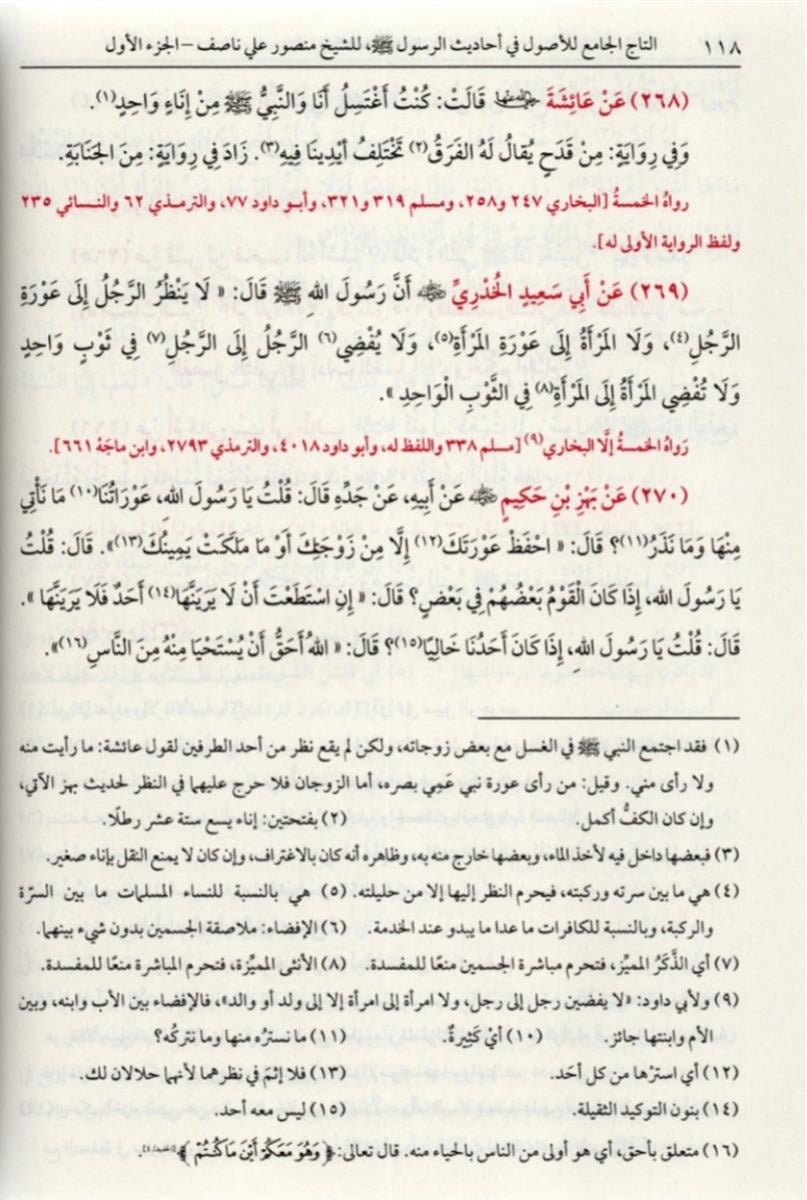 ١١٨ التاج الجامع للأصول في أحاديث الرسول ﷺ، للشيخ منصور علي ناصف – الجزء الأول
(٢٦٨) عَنْ عَائِشَةَ رضي الله عنها قَالَتْ: كُنْتُ أَغْتَسِلُ أَنَا وَالنَّبِيُّ ﷺ مِنْ إِنَاءٍ وَاحِدٍ(١).
وَفِي رِوَايَةٍ: مِنْ قَدَحٍ يُقَالُ لَهُ الفَرَقُ(٢) تَخْتَلِفُ أَيْدِينَا فِيهِ(٣). زَادَ فِي رِوَايَةٍ: مِنَ الجَنَابَةِ.
رواهُ الخمسةُ [البخاري ٢٤٧ و٢٥٨، ومسلم ٣١٩ و٣٢١، وأبو داود ٧٧، والترمذي ٦٢ والنسائي ٢٣٥
ولفظ الرواية الأولى له].
(٢٦٩) عَنْ أَبِي سَعِيدٍ الخُدْرِيِّ ﷺ أَنَّ رَسُولَ اللهِ ﷺ قَالَ: « لَا يَنْظُرُ الرَّجُلُ إِلَى عَوْرَةِ
الرَّجُلِ(٤)، وَلَا المَرْأَةُ إِلَى عَوْرَةِ المَرْأَةِ(٥)، وَلَا يُفْضِي(٦) الرَّجُلُ إِلَى الرَّجُلِ(٧) فِي ثَوْبٍ وَاحِدٍ
وَلَا تُفْضِي المَرْأَةُ إِلَى المَرْأَةِ(٨) فِي الثَّوْبِ الْوَاحِدِ ».
رَواهُ الخمسةُ إلَّا البخاري(٩) [مسلم ٣٣٨ واللفظ له، وأبو داود ٤٠١٨، والترمذي ٢٧٩٣، وابن ماجَهْ ٦٦١].
(٢٧٠) عَنْ بَهْزِ بْنِ حَكِيمٍ ﷺ عَنْ أَبِيهِ، عَنْ جَدِّهِ قَالَ: قُلْتُ يَا رَسُولَ الله، عَوْرَاتُنَا(١٠) مَا نَأْتِي
مِنْهَا وَمَا نَذَرُ(١١)؟ قَالَ: « احْفَظْ عَوْرَتَكَ(١٢) إِلَّا مِنْ زَوْجَتِكَ أَوْ مَا مَلَكَتْ يَمِينُكَ(١٣)». قَالَ: قُلْتُ
يَا رَسُولَ الله، إِذَا كَانَ القَوْمُ بَعْضُهُمْ فِي بَعْضٍ؟ قَالَ: « إِنِ اسْتَطَعْتَ أَنْ لَا يَرَيَنَّهَا(١٤) أَحَدٌ فَلَا يَرَيَنَّهَا ».
قَالَ: قُلْتُ يَا رَسُولَ الله، إِذَا كَانَ أَحَدُنَا خَالِيًا(١٥)؟ قَالَ: « اللهُ أَحَقُّ أَنْ يُسْتَحْيَا مِنْهُ مِنَ النَّاسِ(١٦)».
(١) فقد اجتمع النبي ﷺ في الغسل مع بعض زوجاته، ولكن لم يقع نظر من أحد الطرفين لقول عائشة: ما رأيت منه
ولا رأى مني. وقيل: من رأى عورة نبي عَمِي بصره، أما الزوجان فلا حرج عليهما في النظر لحديث بهز الآتي،
وإن كان الكفُّ أكمل. (٢) بفتحتين: إناء يسع ستة عشر رطلًا.
(٣) فبعضها داخل فيه لأخذ الماء، وبعضها خارج منه به، وظاهره أنه كان بالاغتراف، وإن كان لا يمنع النقل بإناء صغير.
(٤) هي ما بين سرته وركبته، فيحرم النظر إليها إلا من حليلته. (٥) هي بالنسبة للنساء المسلمات ما بين السرّة
والركبة، وبالنسبة للكافرات ما عدا ما يبدو عند الخدمة. (٦) الإفضاء: ملاصقة الجسمين بدون شيء بينهما.
(٧) أي الذَّكَرُ المميِّز، فتحرم مباشرة الجسمين منعًا للمفسدة. (٨) الأنثى المميِّزة، فتحرم المباشرة منعًا للمفسدة.
(٩) ولأبي داود: «لا يفضين رجل إلى رجل، ولا امرأة إلى امرأة إلا إلى ولد أو والد»، فالإفضاء بين الأب وابنه، وبين
الأم وابنتها جائز. (١٠) أيْ كَثِيرةٌ. (١١) ما نسترُه منها وما نتركُه؟
(١٢) أي استرْها من كل أحَد. (١٣) فلا إثمَ في نظرهما لأنهما حلالان لك.
(١٤) بنون التوكيد الثقيلة. (١٥) ليس معه أحد.
(١٦) متعلق بأحق، أي هو أولى من الناس بالحياء منه. قال تعالى: ﴿ وَهُوَ مَعَكُمْ أَيْنَ مَا كُنتُمْ ﴾ [الحديد: ٤].